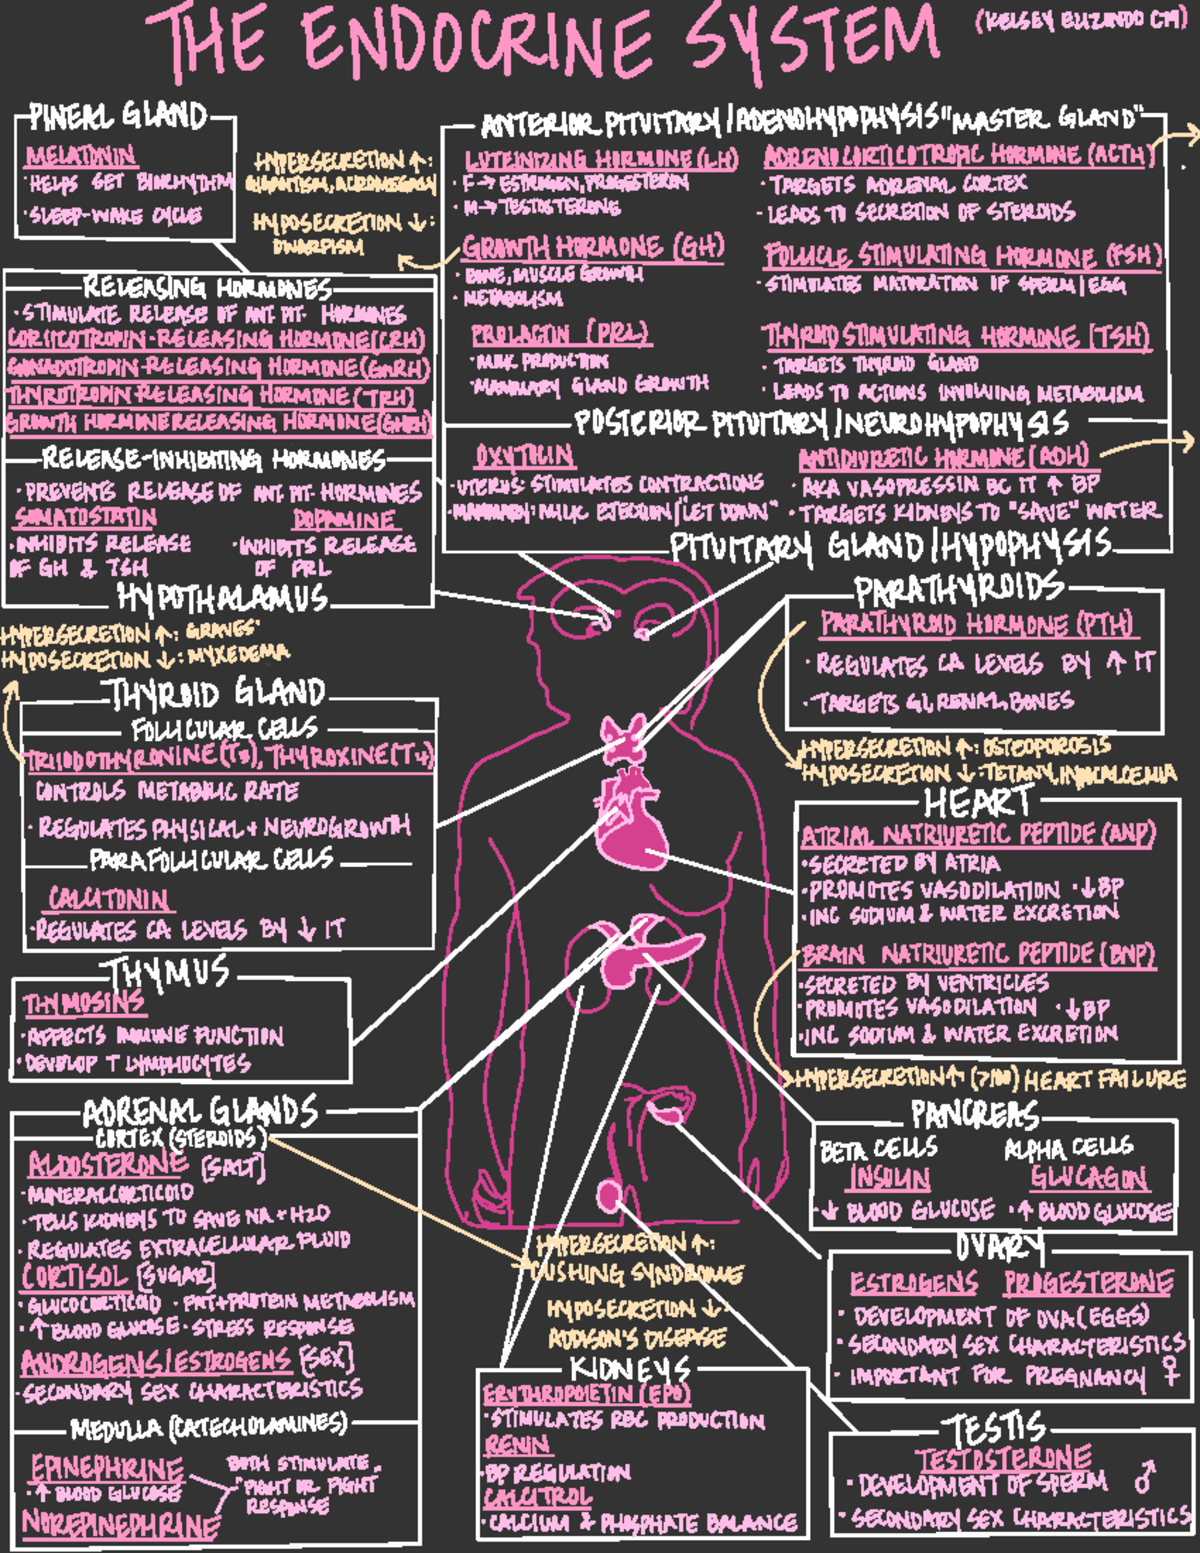 THE ENDOCRINE SYSTEM
(KELSEY ELIZONDO CM)
PINEAL GLAND
MELATONIN
· HELPS SET BIORHYTHM
· SLEEP-WAKE CYCLE
HYPERSECRETION ↑:
GIGANTISM, ACROMEGALY
HYPOSECRETION ↓:
DWARFISM
ANTERIOR PITUITARY/ADENOHYPOPHYSIS "MASTER GLAND"
LUTEINIZING HORMONE (LH)
· F→ ESTROGEN, PROGESTERON
· M→ TESTOSTERONE
GROWTH HORMONE (GH)
· BONE, MUSCLE GROWTH
· METABOLISM
PROLACTIN (PRL)
· MILK PRODUCTION
· MAMMARY GLAND GROWTH
ADRENOCORTICOTROPIC HORMONE (ACTH)
· TARGETS ADRENAL CORTEX
- LEADS TO SECRETION OF STEROIDS
FOLLICLE STIMULATING HORMONE (FSH)
· STIMULATES MATURATION OF SPERM/EGG
THYROID STIMULATING HORMONE (TSH)
· TARGETS THYROID GLAND
· LEADS TO ACTIONS INVOLVING METABOLISM
POSTERIOR PITUITARY/NEUROHYPOPHYSIS
OXYTOCIN
· UTERUS: STIMULATES CONTRACTIONS
· MAMMARY: MILK EJECTION/"LET DOWN"
ANTIDIURETIC HORMONE (ADH)
· AKA VASOPRESSIN BC IT ↑ BP
· TARGETS KIDNEYS TO "SAVE" WATER
PITUITARY GLAND/HYPOPHYSIS
RELEASING HORMONES
· STIMULATE RELEASE OF ANT. PIT. HORMONES
CORTICOTROPIN-RELEASING HORMONE (CRH)
GONADOTROPIN-RELEASING HORMONE (GnRH)
THYROTROPIN-RELEASING HORMONE (TRH)
GROWTH HORMONE RELEASING HORMONE (GHRH)
RELEASE-INHIBITING HORMONES
· PREVENTS RELEASE OF ANT. PIT. HORMONES
SOMATOSTATIN
· INHIBITS RELEASE
OF GH & TSH
DOPAMINE
· INHIBITS RELEASE
OF PRL
HYPOTHALAMUS
HYPERSECRETION ↑: GRAVES'
HYPOSECRETION ↓: MYXEDEMA
THYROID GLAND
FOLLICULAR CELLS
TRIIODOTHYRONINE (T3), THYROXINE (T4)
CONTROLS METABOLIC RATE
· REGULATES PHYSICAL + NEUROGROWTH
PARAFOLLICULAR CELLS
CALCITONIN
· REGULATES CA LEVELS BY ↓ IT
THYMUS
THYMOSINS
· AFFECTS IMMUNE FUNCTION
· DEVELOP T LYMPHOCYTES
PARATHYROIDS
PARATHYROID HORMONE (PTH)
· REGULATES CA LEVELS BY ↑ IT
· TARGETS GI, RENAL, BONES
HYPERSECRETION ↑: OSTEOPOROSIS
HYPOSECRETION ↓: TETANY, HYPOCALCEMIA
HEART
ATRIAL NATRIURETIC PEPTIDE (ANP)
· SECRETED BY ATRIA
· PROMOTES VASODILATION · ↓ BP
· INC SODIUM & WATER EXCRETION
BRAIN NATRIURETIC PEPTIDE (BNP)
· SECRETED BY VENTRICLES
· PROMOTES VASODILATION · ↓ BP
· INC SODIUM & WATER EXCRETION
HYPERSECRETION ↑ (>100) HEART FAILURE
ADRENAL GLANDS
CORTEX (STEROIDS)
ALDOSTERONE [SALT]
· MINERALCORTICOID
· TELLS KIDNEYS TO SAVE NA + H2O
· REGULATES EXTRACELLULAR FLUID
CORTISOL [SUGAR]
· GLUCOCORTICOID · FAT + PROTEIN METABOLISM
· ↑ BLOOD GLUCOSE · STRESS RESPONSE
ANDROGENS/ESTROGENS [SEX]
· SECONDARY SEX CHARACTERISTICS
MEDULLA (CATECHOLAMINES)
EPINEPHRINE
· ↑ BLOOD GLUCOSE
NOREPINEPHRINE
BOTH STIMULATE
"FIGHT OR FIGHT
RESPONSE
HYPERSECRETION ↑:
CUSHING SYNDROME
HYPOSECRETION ↓:
ADDISON'S DISEASE
KIDNEYS
ERYTHROPOIETIN (EPO)
· STIMULATES RBC PRODUCTION
RENIN
· BP REGULATION
CALCITROL
· CALCIUM & PHOSPHATE BALANCE
PANCREAS
BETA CELLS
INSULIN
· ↓ BLOOD GLUCOSE
ALPHA CELLS
GLUCAGON
· ↑ BLOOD GLUCOSE
OVARY
ESTROGENS PROGESTERONE
· DEVELOPMENT OF OVA (EGGS)
· SECONDARY SEX CHARACTERISTICS
· IMPORTANT FOR PREGNANCY ♀
TESTIS
TESTOSTERONE
· DEVELOPMENT OF SPERM ♂
· SECONDARY SEX CHARACTERISTICS